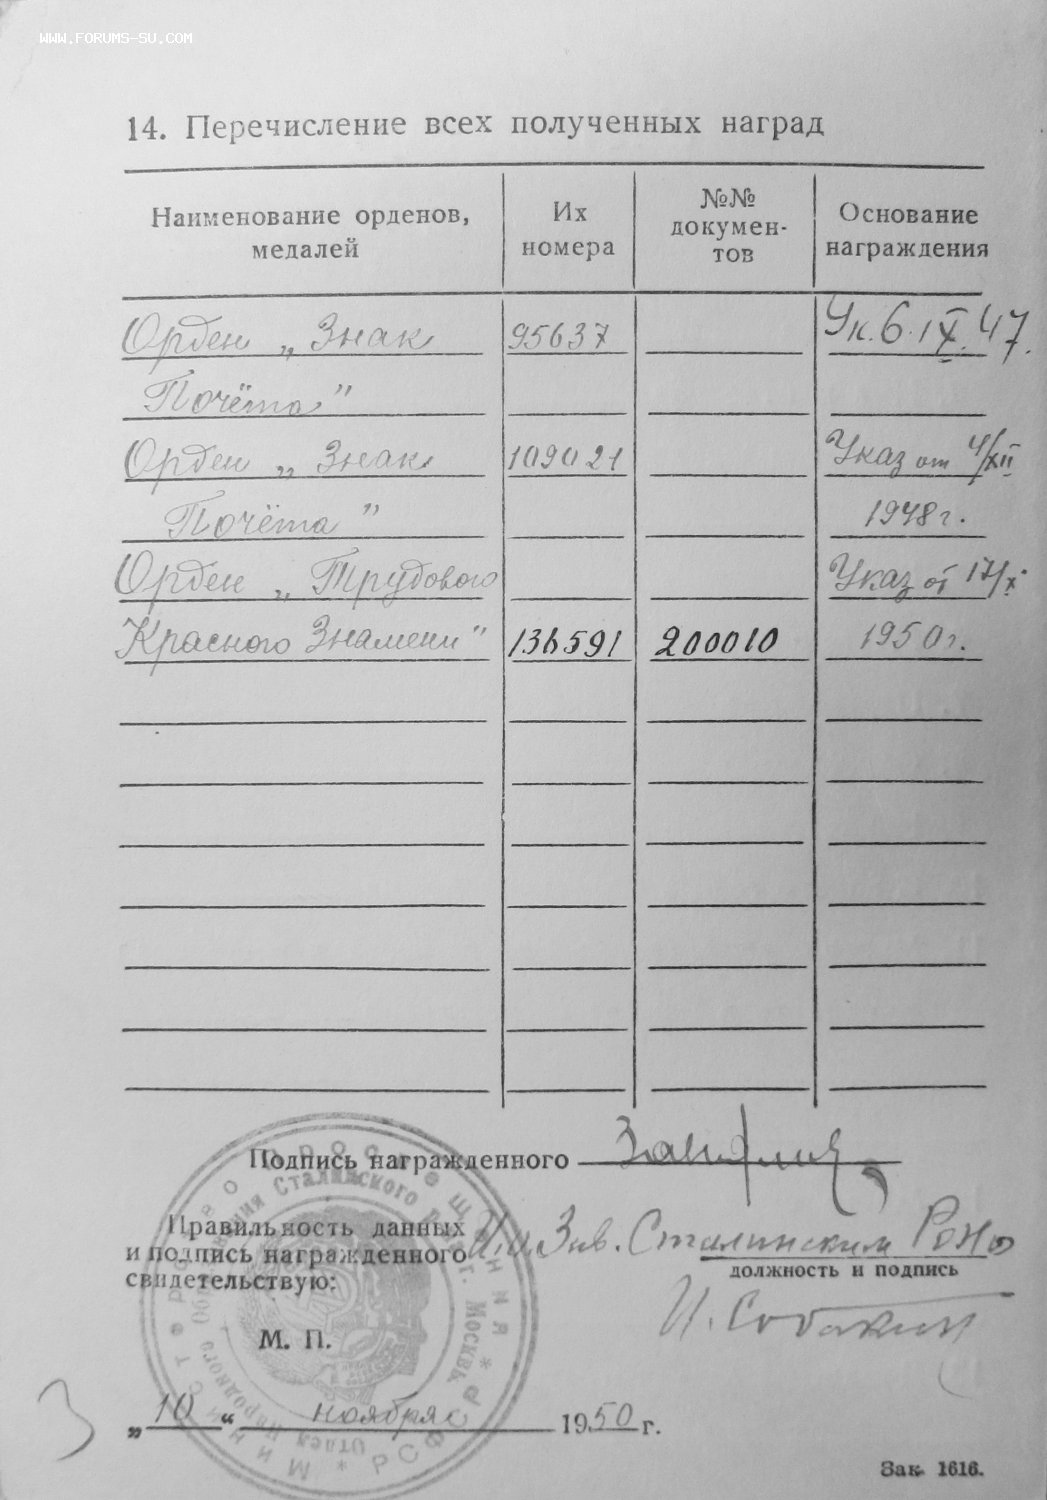 WWW.FORUMS-SU.COM
14. Перечисление всех полученных наград
Наименование орденов, медалей
Их номера
№№ докумен-
тов
Основание награждения
Орден „Знак 95637 Ук. 6.IX.47.
Почёта"
Орден „Знак 109021 Указ от 4/XII
Почёта" 1948г.
Орден „Трудового Указ от 17/X
Красного Знамени" 136591 200010 1950г.
Подпись награжденного
Правильность данных
и подпись награжденного
свидетельствую:
И.о. Зав. Сталинским РОНО
должность и подпись
И. Собакин
М. П.
„10“ ноября 1950 г.
З
Зак. 1616.
Министерство Просвещения * РСФСР *
Отдел Народного Образования Сталинского р-на г. Москвы